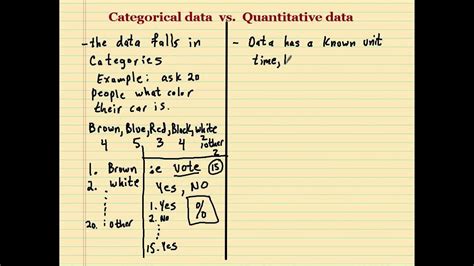 Categorical data vs. Quantitative data
- the data falls in
Categories
Example: ask 20
people what color
their car is.
Brown, Blue, Red, Black, white
4 5 3 4 2
other
2
1. Brown
2. white
20. other
ie vote (15)
Yes, NO
1. Yes
2. No
15. Yes
%
- Data has a known unit
time,